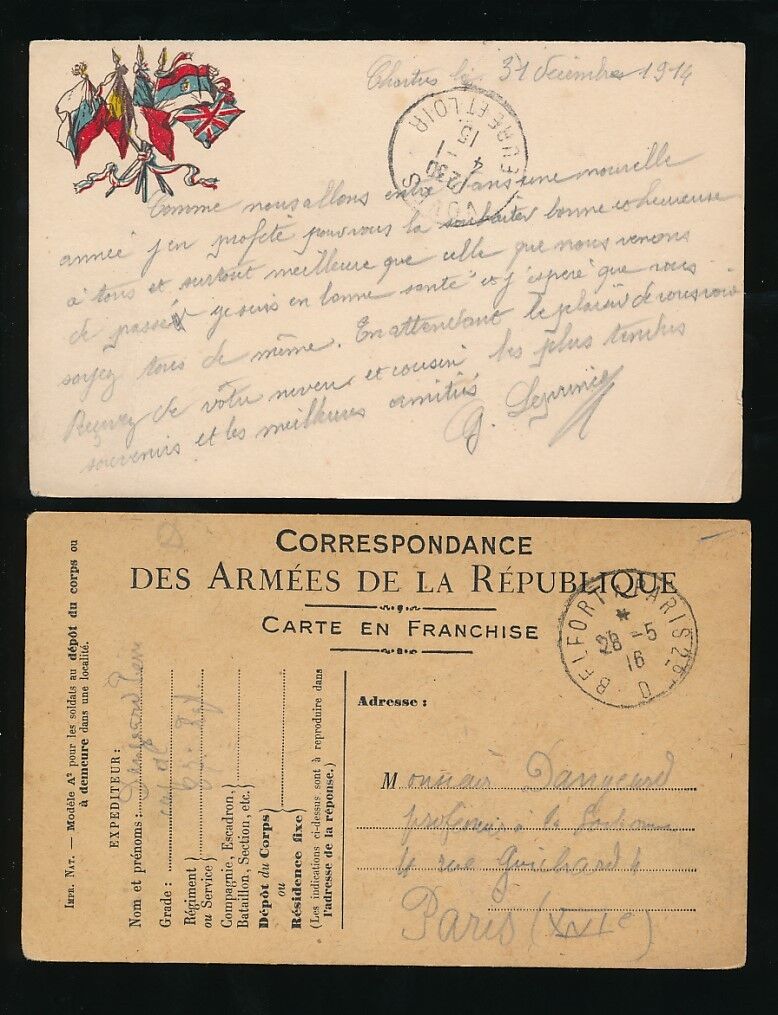 Chartres le 31 décembre 1914
EURE ET LOIR
15
4 - 1
1230
Comme nous allons entrer dans une nouvelle
année j'en profite pour vous la souhaiter bonne et heureuse
à tous et surtout meilleure que celle que nous venons
de passer je suis en bonne santé et j'espère que vous
soyez tous de même. En attendant le plaisir de vous voir
Recevez de votre neveu et cousin les plus tendres
souvenirs et les meilleures amitiés
G. Leprince
CORRESPONDANCE
DES ARMÉES DE LA RÉPUBLIQUE
CARTE EN FRANCHISE
BELFORT A PARIS
26 -5
16
D
IMPR. NAT. — Modèle A² pour les soldats au dépôt du corps ou
à demeure dans une localité.
EXPÉDITEUR :
Nom et prénoms :
Grade :
Régiment
ou Service
Compagnie, Escadron,
Bataillon, Section, etc.
Dépôt du Corps
ou
Résidence fixe
(Les indications ci-dessus sont à reproduire dans
l'adresse de la réponse.)
Adresse :
Monsieur Dangeard
professeur à la Sorbonne
4 rue Guichard 4
Paris (XVIe)